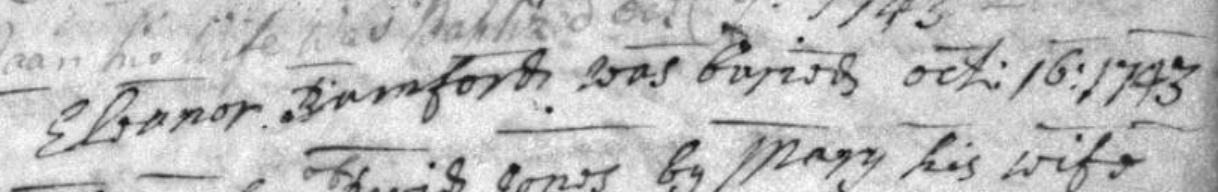 his wife was Baptized oct 1743
Eleanor Bamford was buried oct: 16: 1743
David Jones by Mary his wife